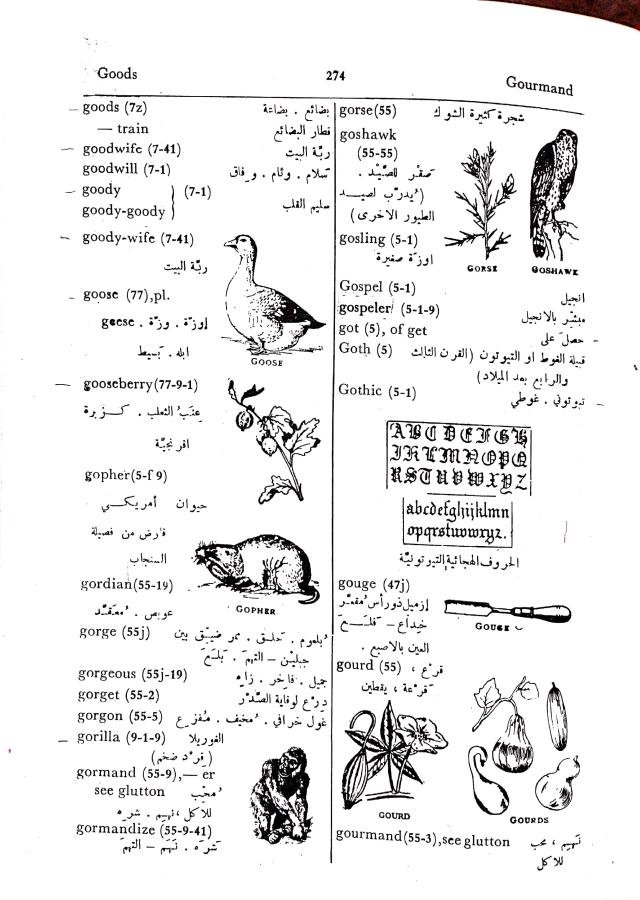 Goods 274 Gourmand
goods (7z) بضائع . بضاعة
— train قطار البضائع
goodwife (7-41) ربّة البيت
goodwill (7-1) سلام . وئام . وفاق
goody
goody-goody } (7-1) سليم القلب
goody-wife (7-41)
ربّة البيت
goose (77),pl.
geese . اوزّة . وزّة
ابله . بسيط
GOOSE
gooseberry(77-9-1)
عِنَبُ الثعلب . كزبرة
افرنجيّة
gopher(5-f 9)
حيوان أمريكي
قارض من فصيلة
السنجاب
GOPHER
gordian(55-19)
عويص . مُعقّد
gorge (55j) بُلعوم . حلق . ممر ضيّق بين
جبلين – التهمَ . بَلَعَ
gorgeous (55j-19) جميل . فاخر . زاهٍ
gorget (55-2) دِرْع لوقاية الصَّدْر
gorgon (55-5) غول خرافي . مُخيف . مُفزِع
gorilla (9-1-9) الغوريلا
(قِرْد ضخم)
gormand (55-9),— er
see glutton مُحبّ
للاكل ،نهيم . شره
gormandize (55-9-41)
شَرَه . نَهَم – التهمَ
gorse(55) شجرة كثيرة الشوك
goshawk
(55-55)
صقر للصَّيْد .
(يُدرَّب لصيد
الطيور الاخرى)
gosling (5-1)
اوزّة صغيرة
GORSE GOSHAWK
Gospel (5-1) انجيل
gospeler (5-1-9) مبشّر بالانجيل
got (5), of get حصل على
Goth (5) قبيلة الغوط او التيوتون (القرن الثالث
والرابع بعد الميلاد)
Gothic (5-1) تيوتوني . غوطي
A B C D E F G H
I K L M N O P Q
R S T U V W X Y Z
abcdefghijklmn
opqrstuvwxyz.
الحروف الهجائية التيوتونيّة
gouge (47j)
إزميل ذو رأس مقعّر
خِداع – قلَعَ
العين بالاصبع .
GOUGE
gourd (55) قرع ،
قَرْعة ، يقطين
GOURD
GOURDS
gourmand(55-3),see glutton نَهيم ، محب
للاكل